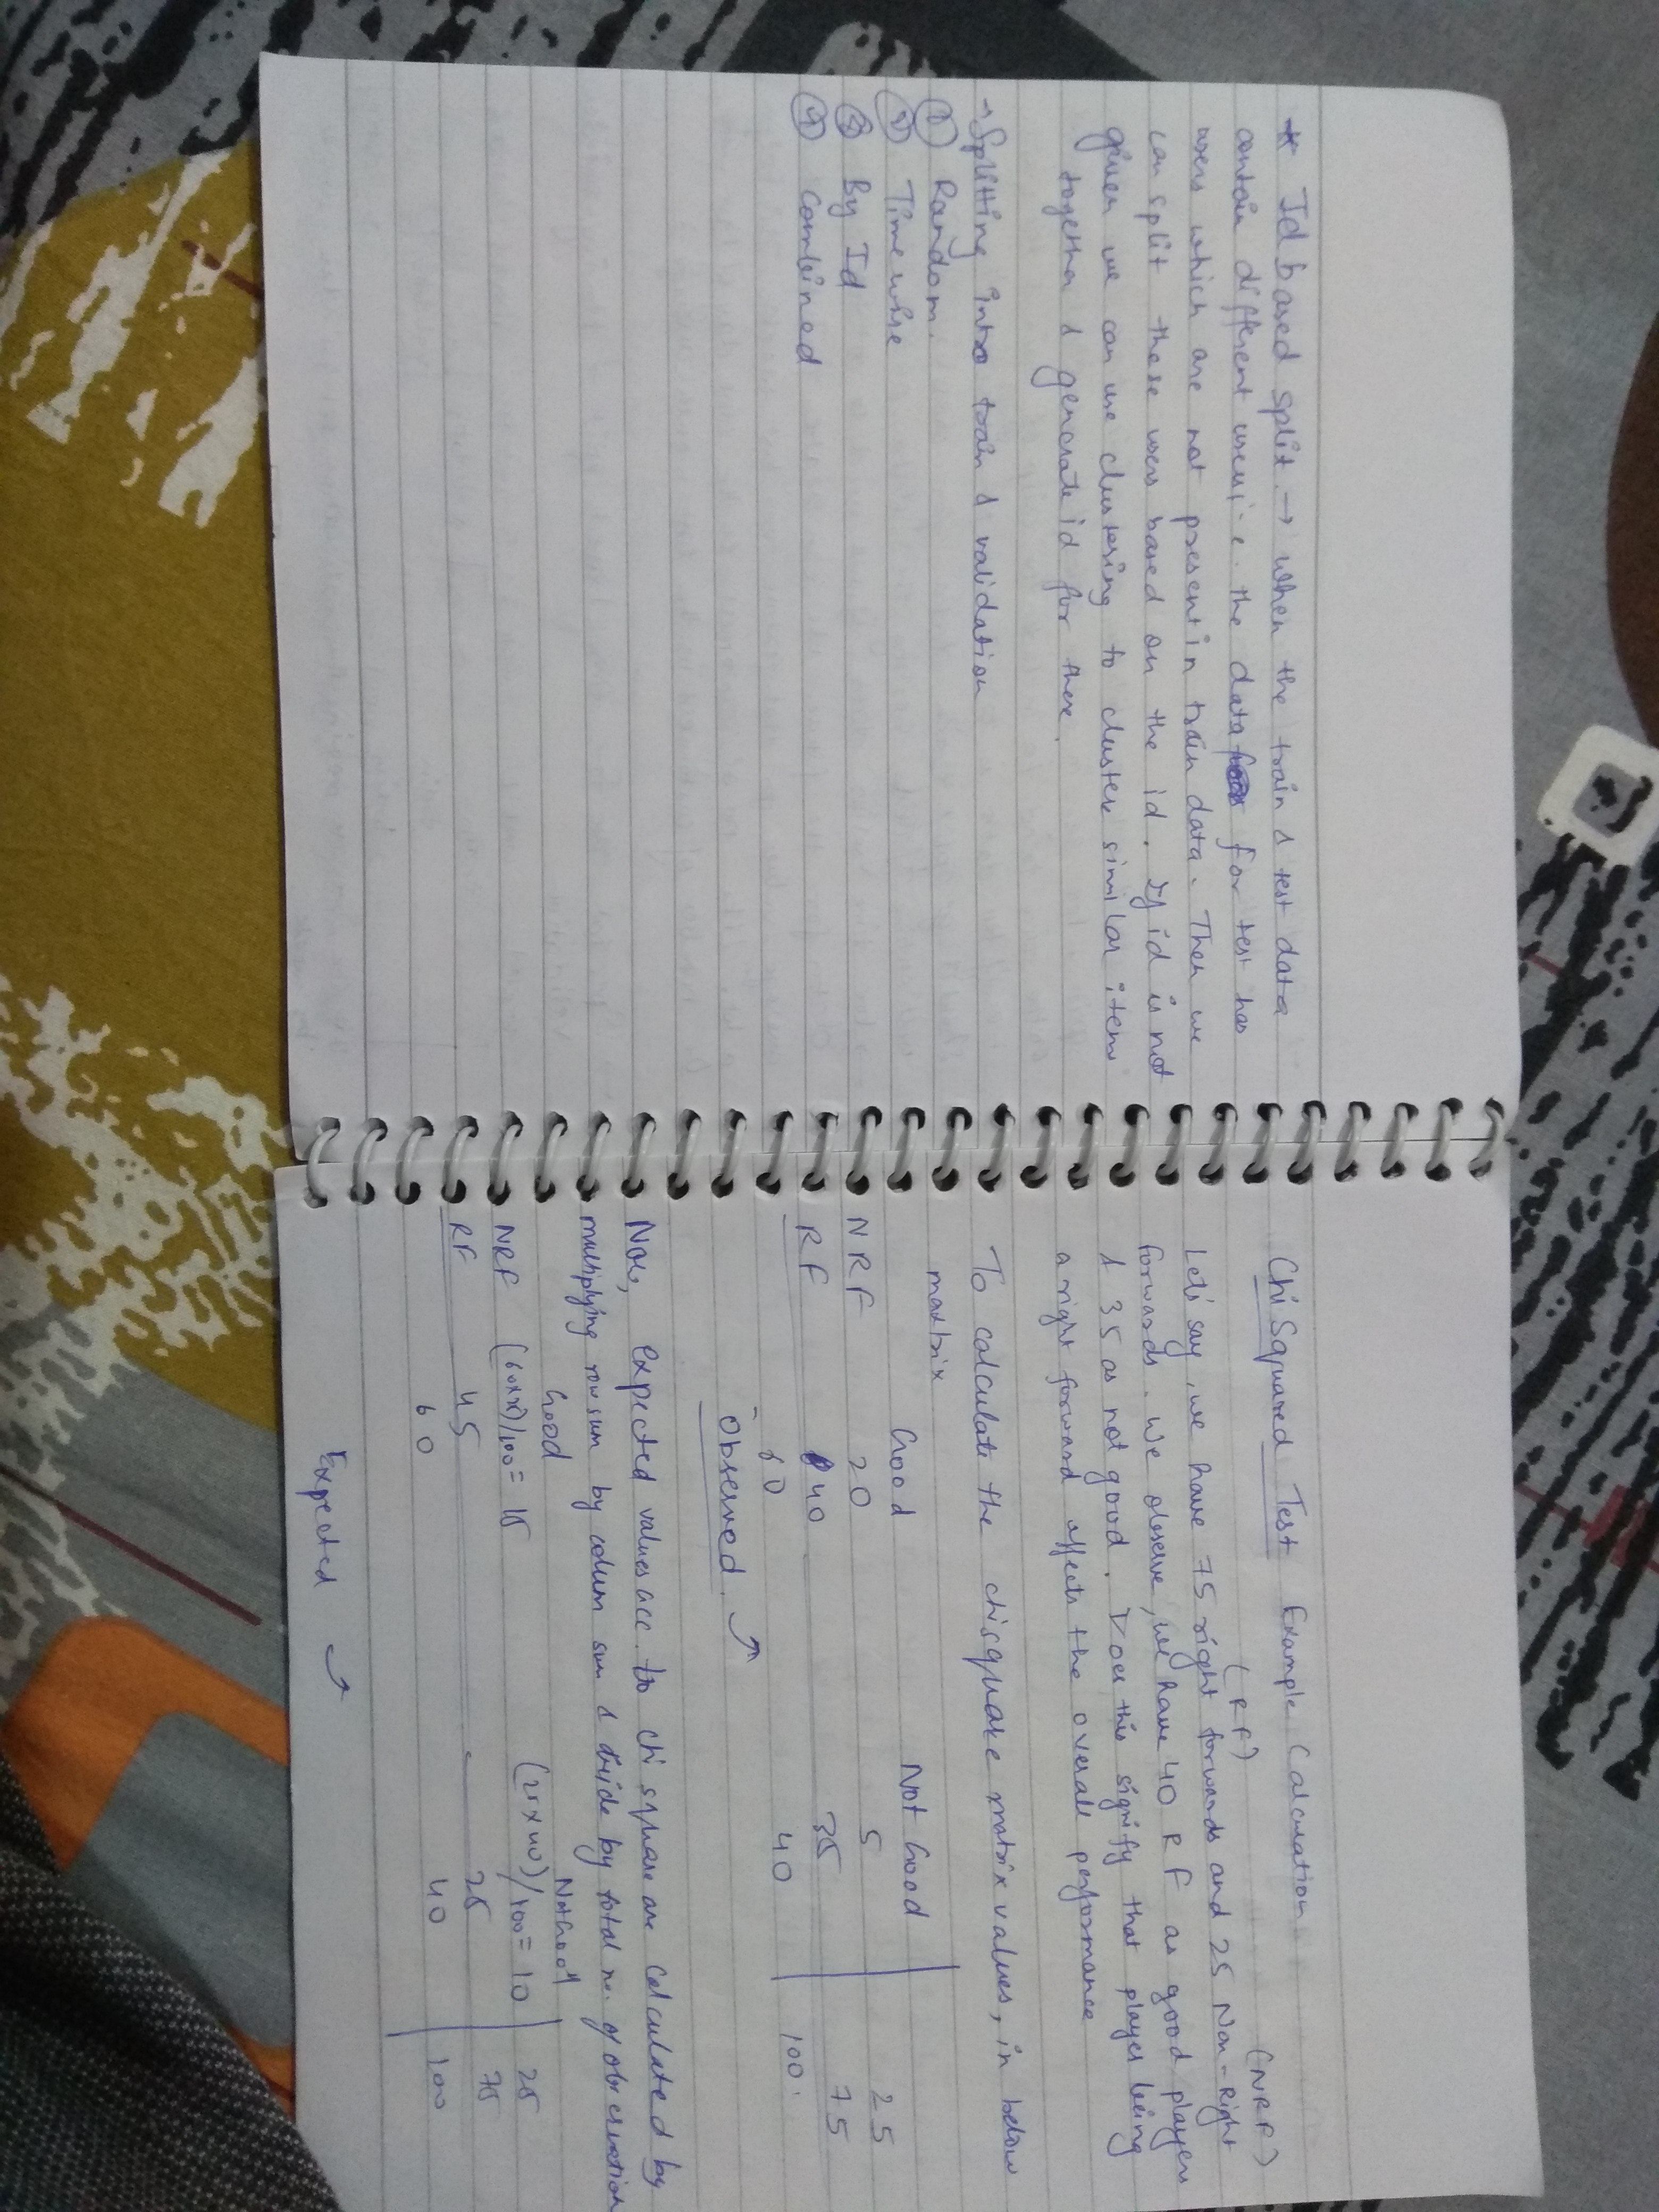 * Id based split. → when the train & test data
contain different users i.e. the data for test has
users which are not present in train data. Then we
can split these users based on the id. If id is not
given we can use clustering to cluster similar items
together & generate id for these.
→ Splitting into train & validation
① Random.
② Timewise
③ By Id
④ Combined
Chi Squared Test Example Calculation
(RF) (NRF)
Let's say, we have 75 right forwards and 25 Non-Right
forwards. We observe, we have 40 RF as good players
& 35 as not good. Does this signify that player being
a right forward affects the overall performance
To calculate the chisquare matrix values, in below
matrix
Good Not Good
NRF 20 5 25
RF 40 35 75
60 40 100.
Observed.
Now, expected values acc. to chi square are calculated by
multiplying row sum by column sum & divide by total no. of observation
Good Not Good
NRF (60x25)/100 = 15 (25x40)/100 = 10 25
RF 45 25 75
60 40 100
Expected